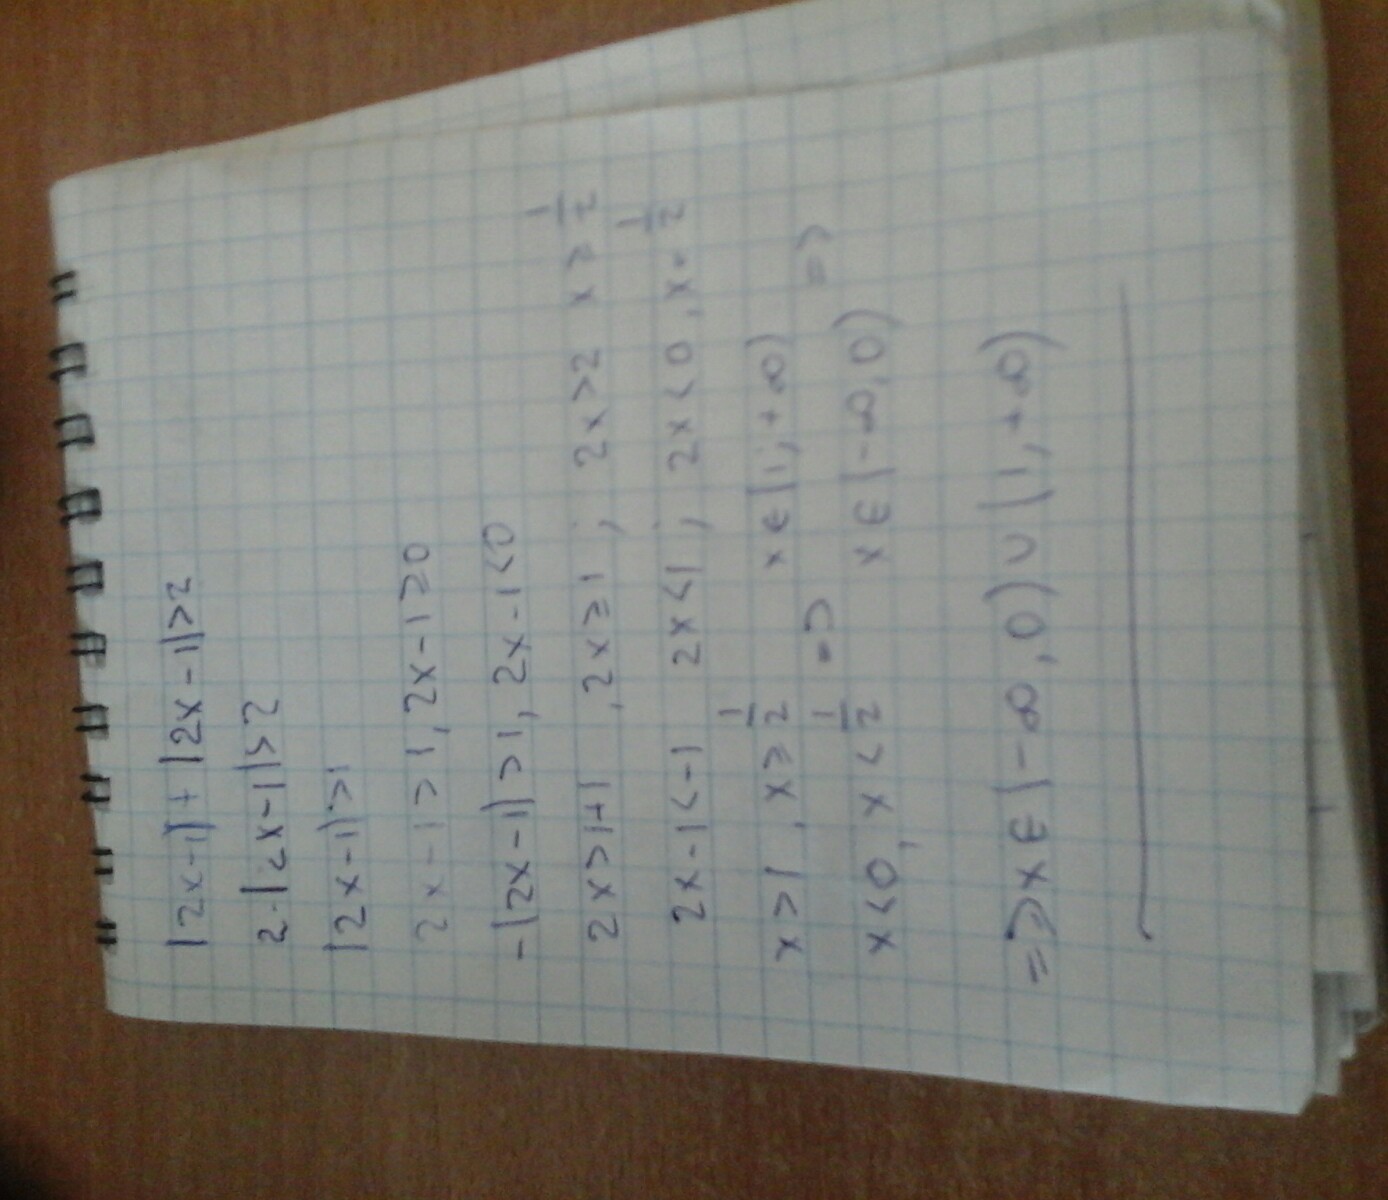 |2x-1|+|2x-1|>2
2·|2x-1|>2
|2x-1|>1
2x-1>1, 2x-1≥0
-|2x-1|>1, 2x-1<0
2x>1+1, 2x≥1; 2x>2 x≥1/2
2x-1<-1 2x<1; 2x<0, x-1/2
x>1, x≥1/2 x∈(1,+∞)
=> =>
x<0, x<1/2 x∈(-∞,0)
=>x∈(-∞,0)∪(1,+∞)